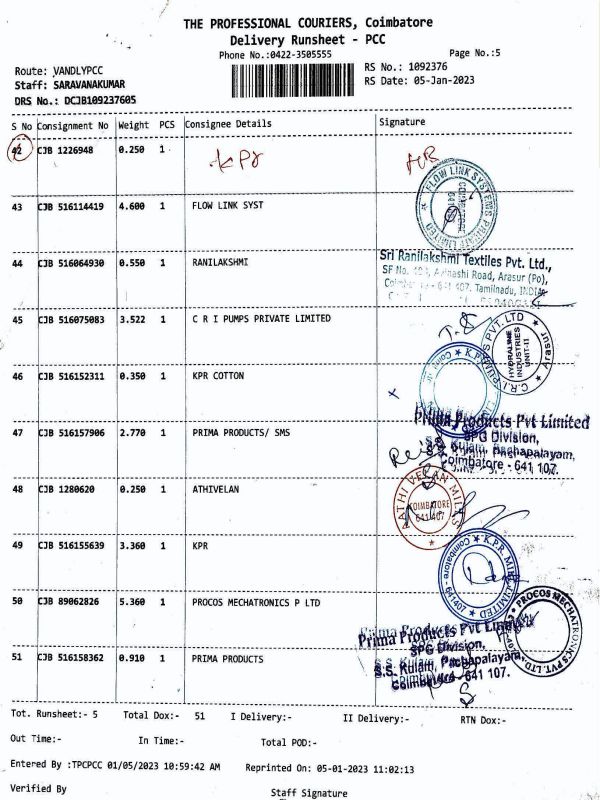 THE PROFESSIONAL COURIERS, Coimbatore
Delivery Runsheet - PCC
Phone No.:0422-3505555
Page No.:5
Route: VANDLYPCC
RS No.: 1092376
Staff: SARAVANAKUMAR
RS Date: 05-Jan-2023
DRS No.: DCJB109237605
S No Consignment No Weight PCS Consignee Details Signature
42 CJB 1226948 0.250 1 KPR
43 CJB 516114419 4.600 1 FLOW LINK SYST
FLOW LINK SYSTEMS PRIVATE LIMITED
44 CJB 516064930 0.550 1 RANILAKSHMI
Sri Ranilakshmi Textiles Pvt. Ltd.,
Avinashi Road, Arasur (Po),
641 407. Tamilnadu, INDIA
45 CJB 516075083 3.522 1 C R I PUMPS PRIVATE LIMITED
C.R.I. PUMPS PVT. LTD
Arasur
HYDRALINE
INDUSTRIES
UNIT-II
46 CJB 516152311 0.350 1 KPR COTTON
47 CJB 516157906 2.770 1 PRIMA PRODUCTS/ SMS
Prima Products Pvt Limited
SPG Division,
S.S. Kulam, Pachapalayam,
Coimbatore - 641 107.
48 CJB 1280620 0.250 1 ATHIVELAN
AATHI VELAN MILLS
COIMBATORE
641 407
49 CJB 516155639 3.360 1 KPR
K.P.R. MILL LIMITED
Coimbatore
641 407
50 CJB 89062826 5.360 1 PROCOS MECHATRONICS P LTD
PROCOS MECHATRONICS PVT. LTD.
51 CJB 516158362 0.910 1 PRIMA PRODUCTS
Prima Products Pvt Limited
SPG Division,
S.S. Kulam, Pachapalayam,
Coimbatore - 641 107.
Tot. Runsheet:- 5 Total Dox:- 51 I Delivery:- II Delivery:- RTN Dox:-
Out Time:- In Time:- Total POD:-
Entered By :TPCPCC 01/05/2023 10:59:42 AM Reprinted On: 05-01-2023 11:02:13
Verified By
Staff Signature